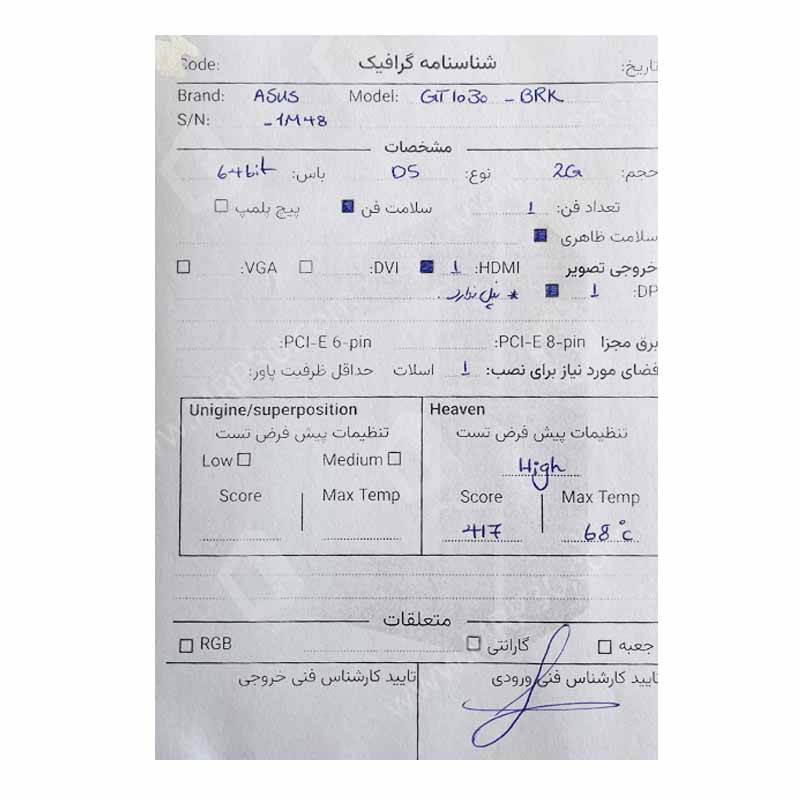 تاریخ: شناسنامه گرافیک Code:
Brand: ASUS Model: GT1030 - BRK
S/N: - 1M48
مشخصات
حجم: 2G نوع: D5 باس: 64bit
تعداد فن: 1 سلامت فن پیچ پلمپ
سلامت ظاهری
خروجی تصویر HDMI: 1 DVI: VGA:
DP: 1 * پنل ندارد.
برق مجزا PCI-E 8-pin: PCI-E 6-pin:
فضای مورد نیاز برای نصب: 1 اسلات حداقل ظرفیت پاور:
Unigine/superposition Heaven
تنظیمات پیش فرض تست تنظیمات پیش فرض تست
Low Medium High
Score Max Temp Score Max Temp
417 68°c
متعلقات
جعبه گارانتی RGB
تایید کارشناس فنی ورودی تایید کارشناس فنی خروجی